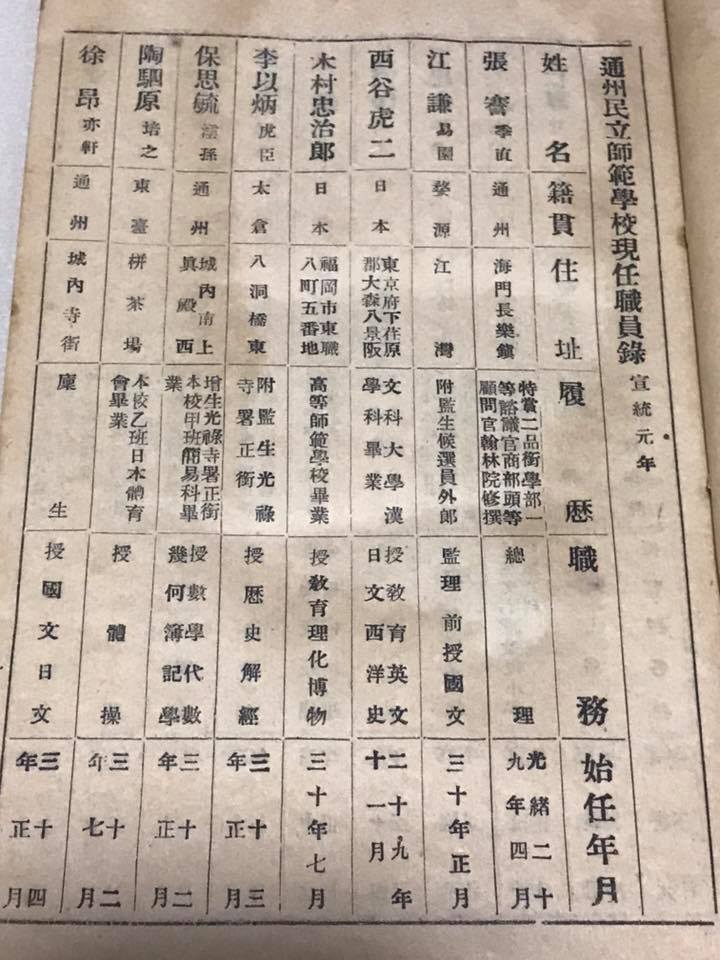 通州民立師範學校現任職員錄 宣統元年
姓名 籍貫 住址 履歴 職務 始任年月
張謇 季直
通州
海門長樂鎮
特賞二品銜學部一
等諮議官商部頭等
顧問官翰林院修撰
總理
光緒二十
九年四月
江謙 易園
婺源
江灣
附監生候選員外郎
監理前授國文
三十年正月
西谷虎二
日本
東京府下荏原
郡大森八景阪
文科大學漢
學科畢業
授敎育英文
日文西洋史
二十九年
十一月
木村忠治郎
日本
福岡市東職
八町五番地
高等師範學校畢業
授敎育理化博物
三十年七月
李以炳 虎臣
太倉
八洞橋東
附監生光祿
寺署正銜
授歴史解經
三十三
年正月
保思毓 孫
通州
城內南上
眞殿西
增生光祿寺署正銜
本校甲班簡易科畢
業
授數學代數
幾何簿記學
三十二
年正月
陶駟原 培之
東臺
栟茶場
本校乙班日本體育
會畢業
授體操
三十二
年七月
徐昂 亦軒
通州
城內寺街
廩生
授國文日文
三十四
年正月